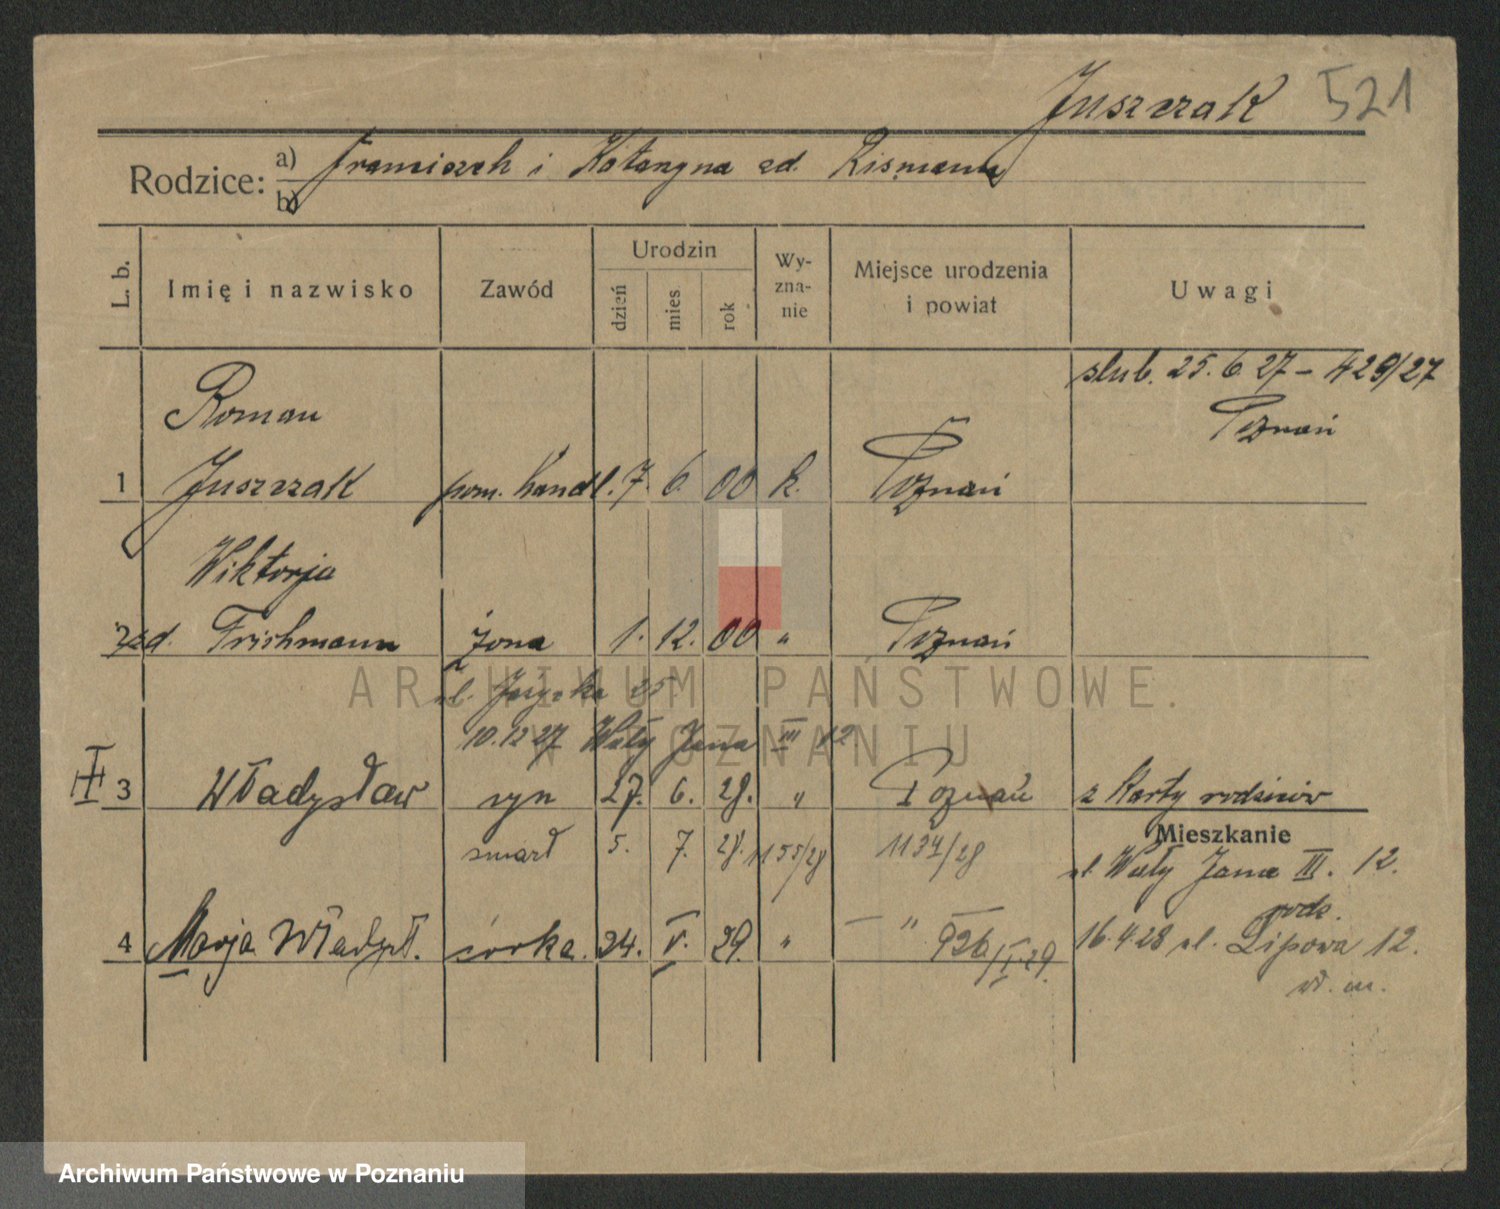 Juszczak 521
Rodzice: a) Franciszek i Katarzyna zd. Rismann
b)
L. b. Imię i nazwisko Zawód Urodzin dzień mies rok Wy-zna-nie Miejsce urodzenia i powiat Uwagi
ślub. 25. 6. 27 – 429/27
Roman Poznań
1 Juszczak pom. handl. 7. 6. 00 k. Poznań
Wiktorja
2 zd. Frichmann żona 1. 12. 00 " Poznań
ARCHIWUM PAŃSTWOWE
W POZNANIU
ul. 25.
10.12.27 Wały Jana III 12
3 Władysław syn 27. 6. 28. " Poznań z karty rodziców
Mieszkanie
zmarł 5. 7. 28. 1155/28 1134/28 ul. Wały Jana III. 12.
rodz.
4 Marja Władysł. córka. 24. V. 29. " – " – 926/V.29. 16.4.28 ul. Lipowa 12.
w. m.
Archiwum Państwowe w Poznaniu